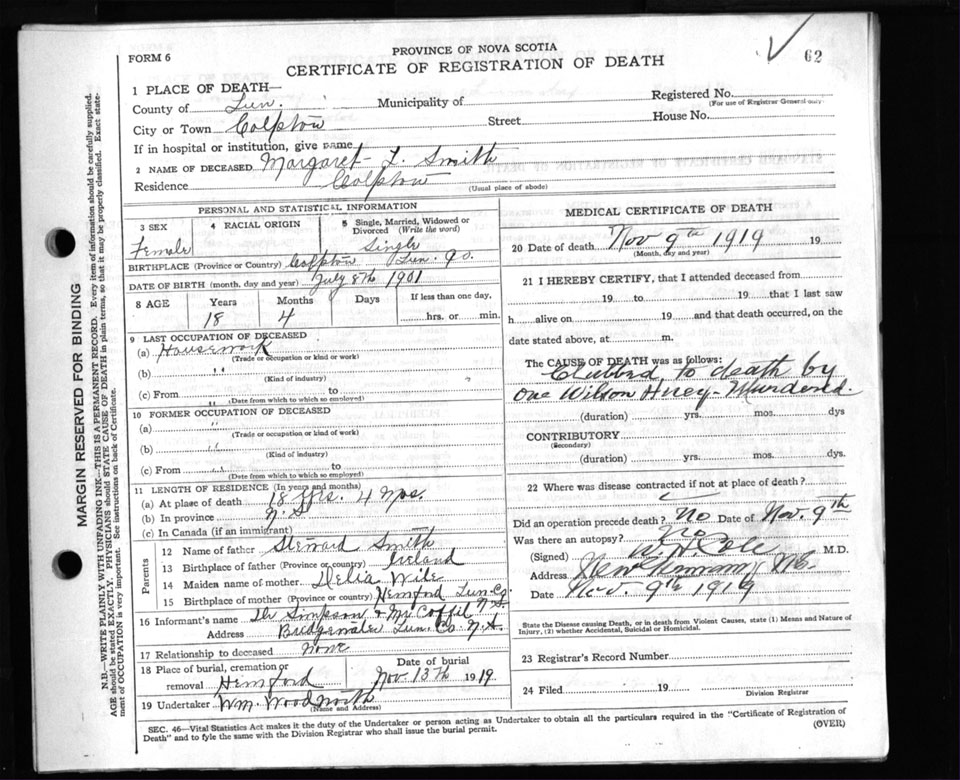 62
PROVINCE OF NOVA SCOTIA
FORM 6
CERTIFICATE OF REGISTRATION OF DEATH
MARGIN RESERVED FOR BINDING
N.B.—WRITE PLAINLY WITH UNFADING INK—THIS IS A PERMANENT RECORD. Every item of information should be carefully supplied.
AGE should be stated EXACTLY. PHYSICIANS should STATE CAUSE OF DEATH in plain terms, so that it may be properly classified. Exact state-
ment of OCCUPATION is very important. See instructions on back of Certificate.
1 PLACE OF DEATH—
Registered No.
(For use of Registrar General only)
County of Lun. Municipality of
House No.
City or Town Colpton Street
If in hospital or institution, give name
2 NAME OF DECEASED Margaret L. Smith
Residence Colpton
(Usual place of abode)
PERSONAL AND STATISTICAL INFORMATION
3 SEX Female
4 RACIAL ORIGIN
5 Single, Married, Widowed or
Divorced (Write the word)
Single
BIRTHPLACE (Province or Country) Colpton Lun. Co.
DATE OF BIRTH (month, day and year) July 8th 1901
8 AGE Years Months Days If less than one day,
18 4 hrs. or min.
9 LAST OCCUPATION OF DECEASED
(a) Housework
(Trade or occupation or kind or work)
(b) " "
(Kind of industry)
(c) From " to
(Date from which to which employed)
10 FORMER OCCUPATION OF DECEASED
(a) "
(Trade or occupation or kind of work)
(b) " "
(Kind of industry)
(c) From " to
(Date from which to which so employed)
11 LENGTH OF RESIDENCE (In years and months)
(a) At place of death 18 Yrs. 4 Mos.
(b) In province N.S
(c) In Canada (if an immigrant)
Parents
12 Name of father Steward Smith
13 Birthplace of father (Province or country) Ireland
14 Maiden name of mother Delia Wile
15 Birthplace of mother (Province or country) Hemford Lun. Co. N.S
16 Informant's name Dr Simpson & Mr Coffil
Address Bridgewater Lun. Co. N.S.
17 Relationship to deceased None
18 Place of burial, cremation or
removal Hemford
Date of burial
Nov 13th 1919
19 Undertaker Wm. Woodworth
(Name and Address)
MEDICAL CERTIFICATE OF DEATH
20 Date of death Nov 9th 1919 19
(Month, day and year)
21 I HEREBY CERTIFY, that I attended deceased from
19 to 19 that I last saw
h alive on 19 and that death occurred, on the
date stated above, at m.
The CAUSE OF DEATH was as follows:
Clubbed to death by
One Wilson Huey - Murdered.
(duration) yrs. mos. dys
CONTRIBUTORY
(Secondary)
(duration) yrs. mos. dys.
22 Where was disease contracted if not at place of death?
Did an operation precede death? No Date of Nov. 9th
Was there an autopsy? Yes
(Signed) W N Cole M.D.
Address New Germany NS.
Date Nov. 9th 1919
State the Disease causing Death, or in death from Violent Causes, state (1) Means and Nature of
Injury, (2) whether Accidental, Suicidal or Homicidal.
23 Registrar's Record Number
24 Filed 19
Division Registrar
SEC. 46—Vital Statistics Act makes it the duty of the Undertaker or person acting as Undertaker to obtain all the particulars required in the "Certificate of Registration of
Death" and to fyle the same with the Division Registrar who shall issue the burial permit. (OVER)